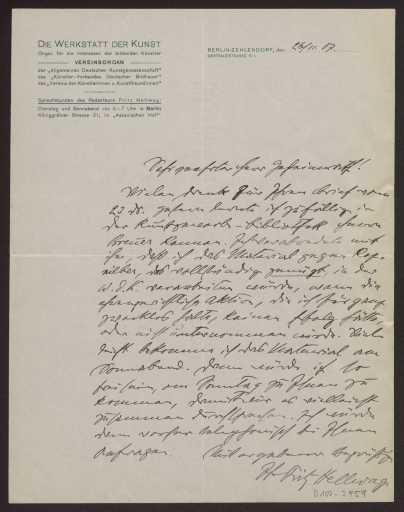 DIE WERKSTATT DER KUNST
Organ für die Interessen der bildenden Künstler
VEREINSORGAN
der „Allgemeinen Deutschen Kunstgenossenschaft"
des „Künstler-Verbandes Deutscher Bildhauer"
des „Vereins der Künstlerinnen u. Kunstfreundinnen"
Sprechstunden des Redakteurs Fritz Hellwag:
Dienstag und Sonnabend von 6–7 Uhr in Berlin
Königgrätzer Strasse 21, in „Askanischen Hof"
BERLIN-ZEHLENDORF, den 24/11. 07.
Sehr geehrter Herr Geheimrat!
Vielen Dank für Ihren Brief vom
23. ds. Gestern konnte ich zufällig in
der Kunstgewerbe-Bibliothek Herrn
Breuer kennen. Ich verabredete mit
ihm, daß ich das Material gegen
das vollständig genügt, in der
W. d. K. verarbeiten würde, wenn die
Aktion, die ich für ganz
zwecklos halte, keinen Erfolg hätte
oder nicht unternommen würde. Viel-
leicht bekomme ich das Material am
Sonnabend. Dann würde ich so
frei sein, am Sonntag zu Ihnen zu
kommen, damit wir es vielleicht
zusammen durchsehen. Ich würde
dann vorher telephonisch bei Ihnen
anfragen. Mit ergebenen
Fritz Hellwag